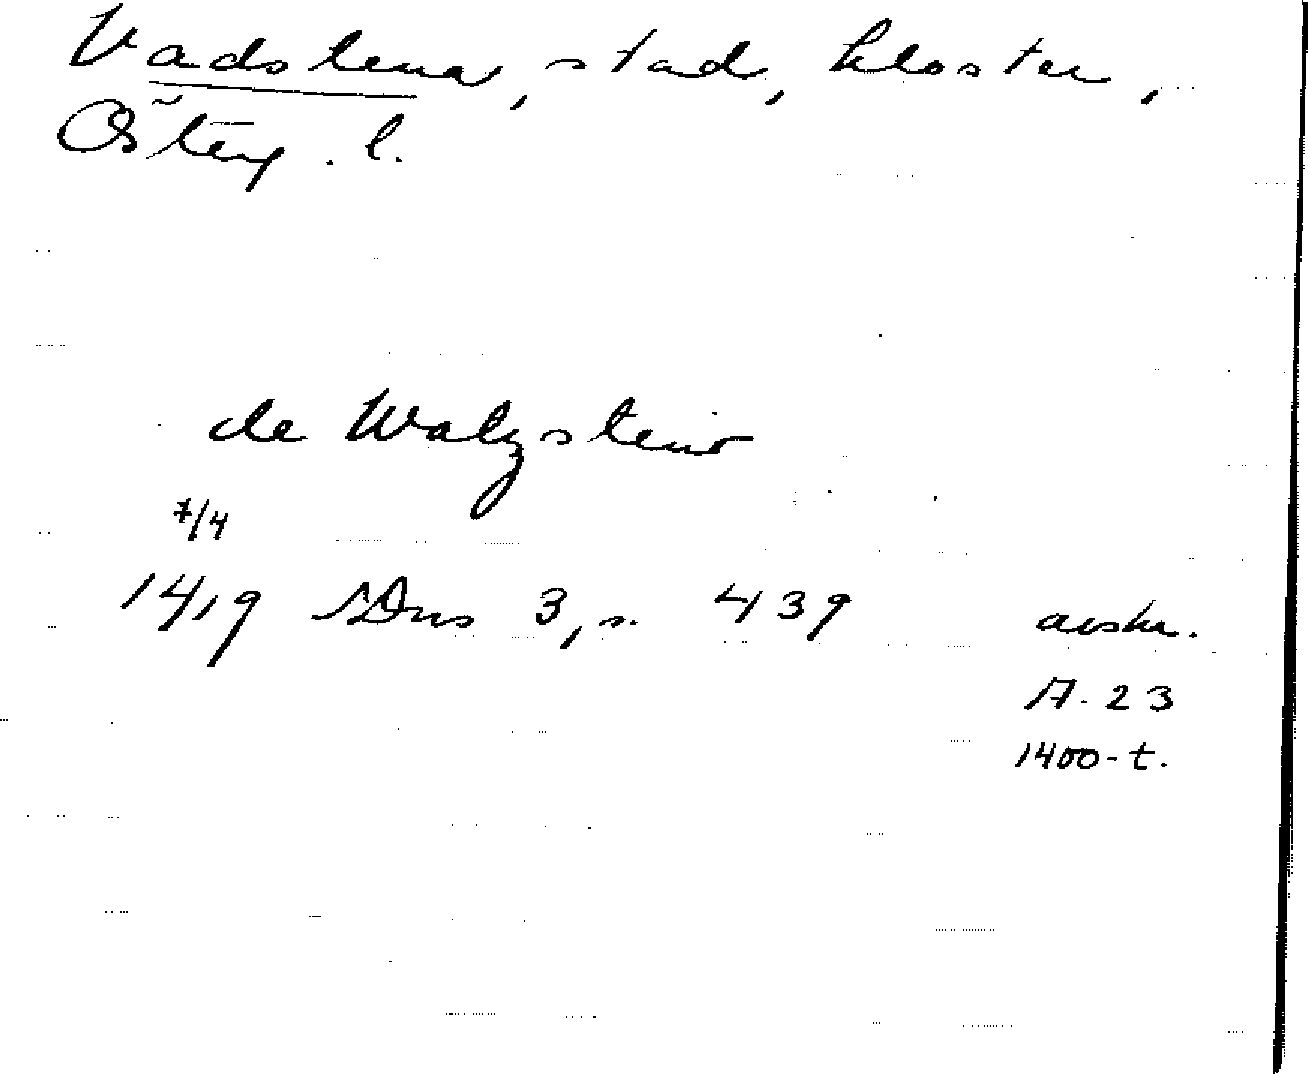 Vadstena, stad, kloster,
Österg. l.
de Watzstein
7/4
1419 SDns 3, s. 439 avskr.
A. 23
1400-t.